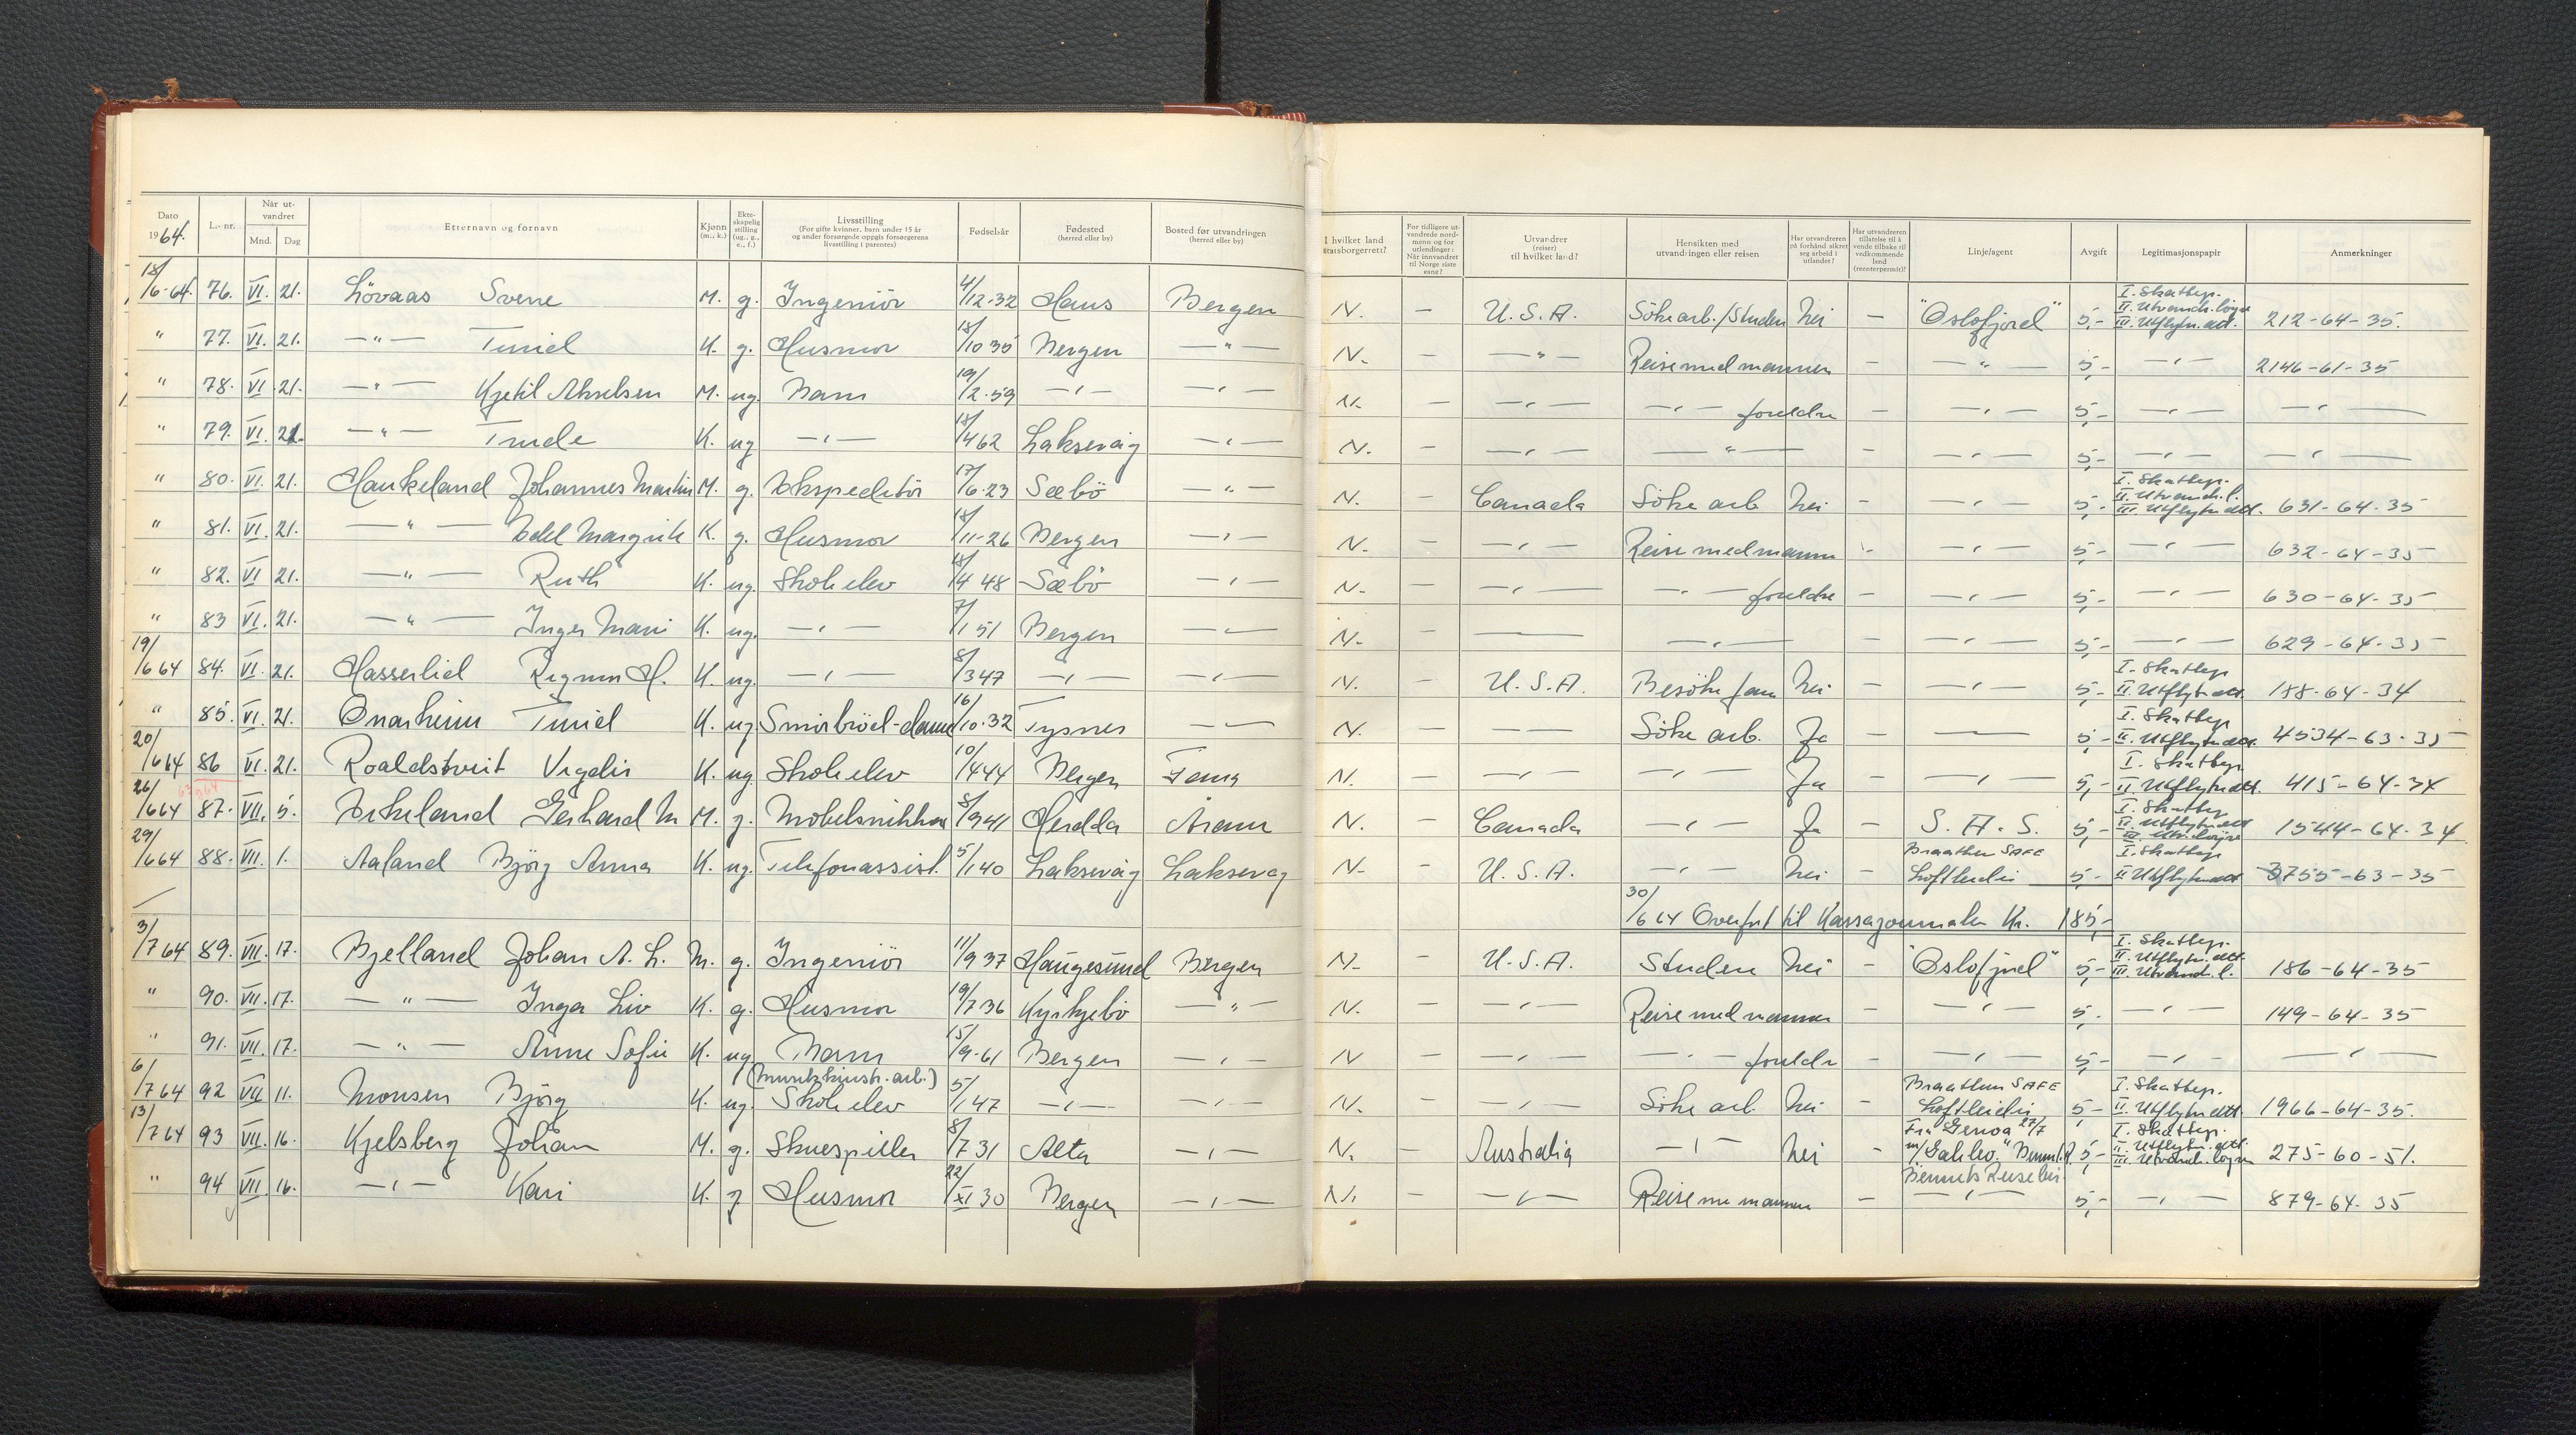 Dato 1964. L.nr. Når utvandret Mnd. Dag Etternavn og fornavn Kjønn (m., k.) Ekteskapelig stilling (ug., g., e., f.) Livsstilling (For gifte kvinner, barn under 15 år og ander forsørgede oppgis forsørgerens livsstilling i parentes) Fødselsår Fødested (herred eller by) Bosted før utvandringen (herred eller by) I hvilket land statsborgerrett? For tidligere utvandrede nordmenn og for utlendinger: Når innvandret til Norge siste gang? Utvandrer (reiser) til hvilket land? Hensikten med utvandringen eller reisen Har utvandreren på forhånd sikret seg arbeid i utlandet? Har utvandreren tillatelse til å vende tilbake til vedkommende land (reenterpermit)? Linje/agent Avgift Legitimasjonspapir Anmerkninger
18/6-64. 76. VI. 21. Lövaas Sverre M. g. Ingeniör 4/12-32 Haus Bergen N. — U.S.A. Söke arb./Studen Nei — "Oslofjord" 5,- I. Skattep. II. Utvandr.löyve III. Utflytn.att. 212-64-35.
" 77. VI. 21. —"— Turid K. g. Husmor 18/10 35 Bergen —"— N. — —"— Reise med mannen — —"— 5,- —"— 2146-61-35
" 78. VI. 21. —"— Kjetil Akselsen M. ug. Barn 19/2-59 —"— —"— N. — —"— —"— foreldre — —"— 5,- —"— —"—
" 79. VI. 21. —"— Trude K. ug —"— 18/4 62 Laksevåg —"— N. — —"— —"— — —"— 5,- —"— —"—
" 80. VI. 21. Haukeland Johannes Martin M. g. Ekspeditör 17/6-23 Sæbö —"— N. — Canada Söke arb Nei — —"— 5,- I. Skattep. II. Utvandr.l. III. Utflytn.att. 631-64-35
" 81. VI. 21. —"— Edel Margrith K. g. Husmor 18/11-26 Bergen —"— N. — —"— Reise med mannen - —"— 5,- —"— 632-64-35
" 82. VI 21. —"— Ruth K. ug. Skoleelev 18/4 48 Sæbö —"— N. — —"— —"— foreldre — —"— 5,- —"— 630-64-35
" 83 VI. 21. —"— Inger Mari K. ug. —"— 7/1 51 Bergen —"— N. — — —"— — —"— 5,- —"— 629-64-35
19/6 64 84. VI. 21. Hasserlid Rigmor H. K. ug. —"— 8/3 47 —"— —"— N. — U.S.A. Besöke fam Nei — —"— 5,- I. Skattep II. Utflytn.att. 188-64-34
" 85. VI. 21. Onarheim Turid K. ug. Smörbröd-dame 16/10-32 Tysnes —"— N. — — Söke arb. Ja — — 5,- I. Skattep II. Utflytn.att. 4534-63-35
20/6 64 86 VI. 21. Roaldstveit Vigdis K. ug. Skoleelev 10/4 44 Bergen Fana N. — —"— —"— Ja — —"— 5,- I. Skattep. II. Utflytn.att. 415-64-34
26/6 64 87. VII. 5. Birkeland Gerhard M M. g. Möbelsnikker 8/9 41 Herdla N. — Canada —"— Ja — S.A.S. 5,- I. Skattep II. Utflytn.att 1544-64-34
29/6 64 88. VII. 1. Aaland Björg Anna K. ug. Telefonassist. 5/1 40 Laksevåg Laksevåg N. — U.S.A. —"— Nei — Braathen SAFE Loftleidir 5,- I. Skattep II Utflytn.att 3755-63-35
30/6 64 Overfört til Kassajournalen Kr. 185,-
3/7 64 89. VII. 17. Bjelland Johan A. L. M. g. Ingeniör 11/9 37 Haugesund Bergen N. — U.S.A. Studere Nei — "Oslofjord" 5,- I. Skattep. II. Utflytn.att. III. Utvandr.l. 186-64-35
" 90. VII. 17. —"— Inga Liv K. g. Husmor 19/7 36 Kyrkjebö —"— N. — —"— Reise med mannen — —"— 5,- —"— 149-64-35
" 91. VII. 17. —"— Anne Sofie K. ug Barn 15/9-61 Bergen —"— N — —"— —"— foreldre — —"— 5,- —"— —"—
6/7 64 92 VII 11. Monsen Björg K. ug. Skoleelev 5/1 47 —"— —"— N. — —"— Söke arb. Nei — Braathen SAFE Loftleidir 5- I. Skattep. II. Utflytn.att. 1966-64-35.
13/7 64 93 VII. 16. Kjelsberg Johan M. g. Skuespiller 8/7 31 Alta —"— N. — Australia —"— Nei — Fra Genoa 27/7 m/"Galileo" 5,- I. Skattep. II. Utflytn.att. III. Utvandr.löyve 275-60-51.
" 94 VII. 16. —"— Kari K. g Husmor 22/XI 30 Bergen —"— N. — —"— Reise m mannen — Bennets Reisebur —"— 5,- —"— 879-64-35